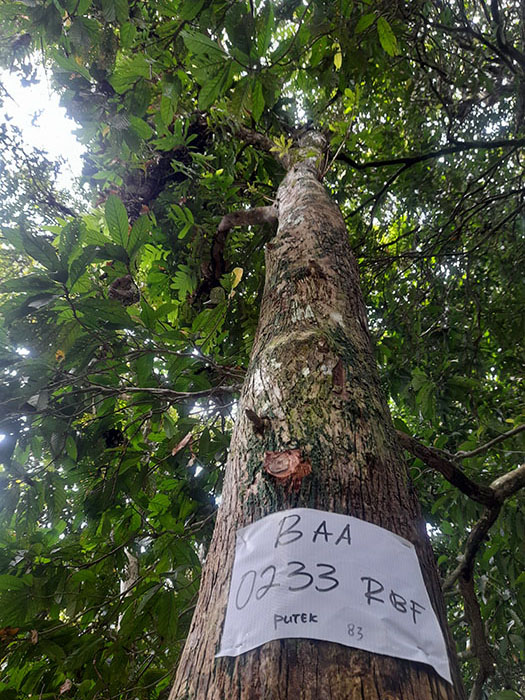 BAA
0233 RBF
PUTEK 83